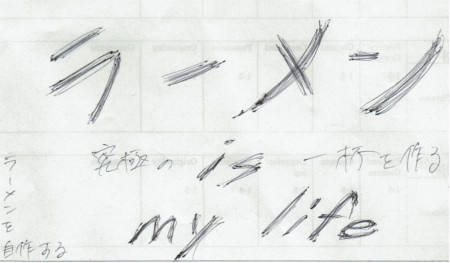 ラーメン
究極の is 一杯を作る
my life
ラーメンを
自作する